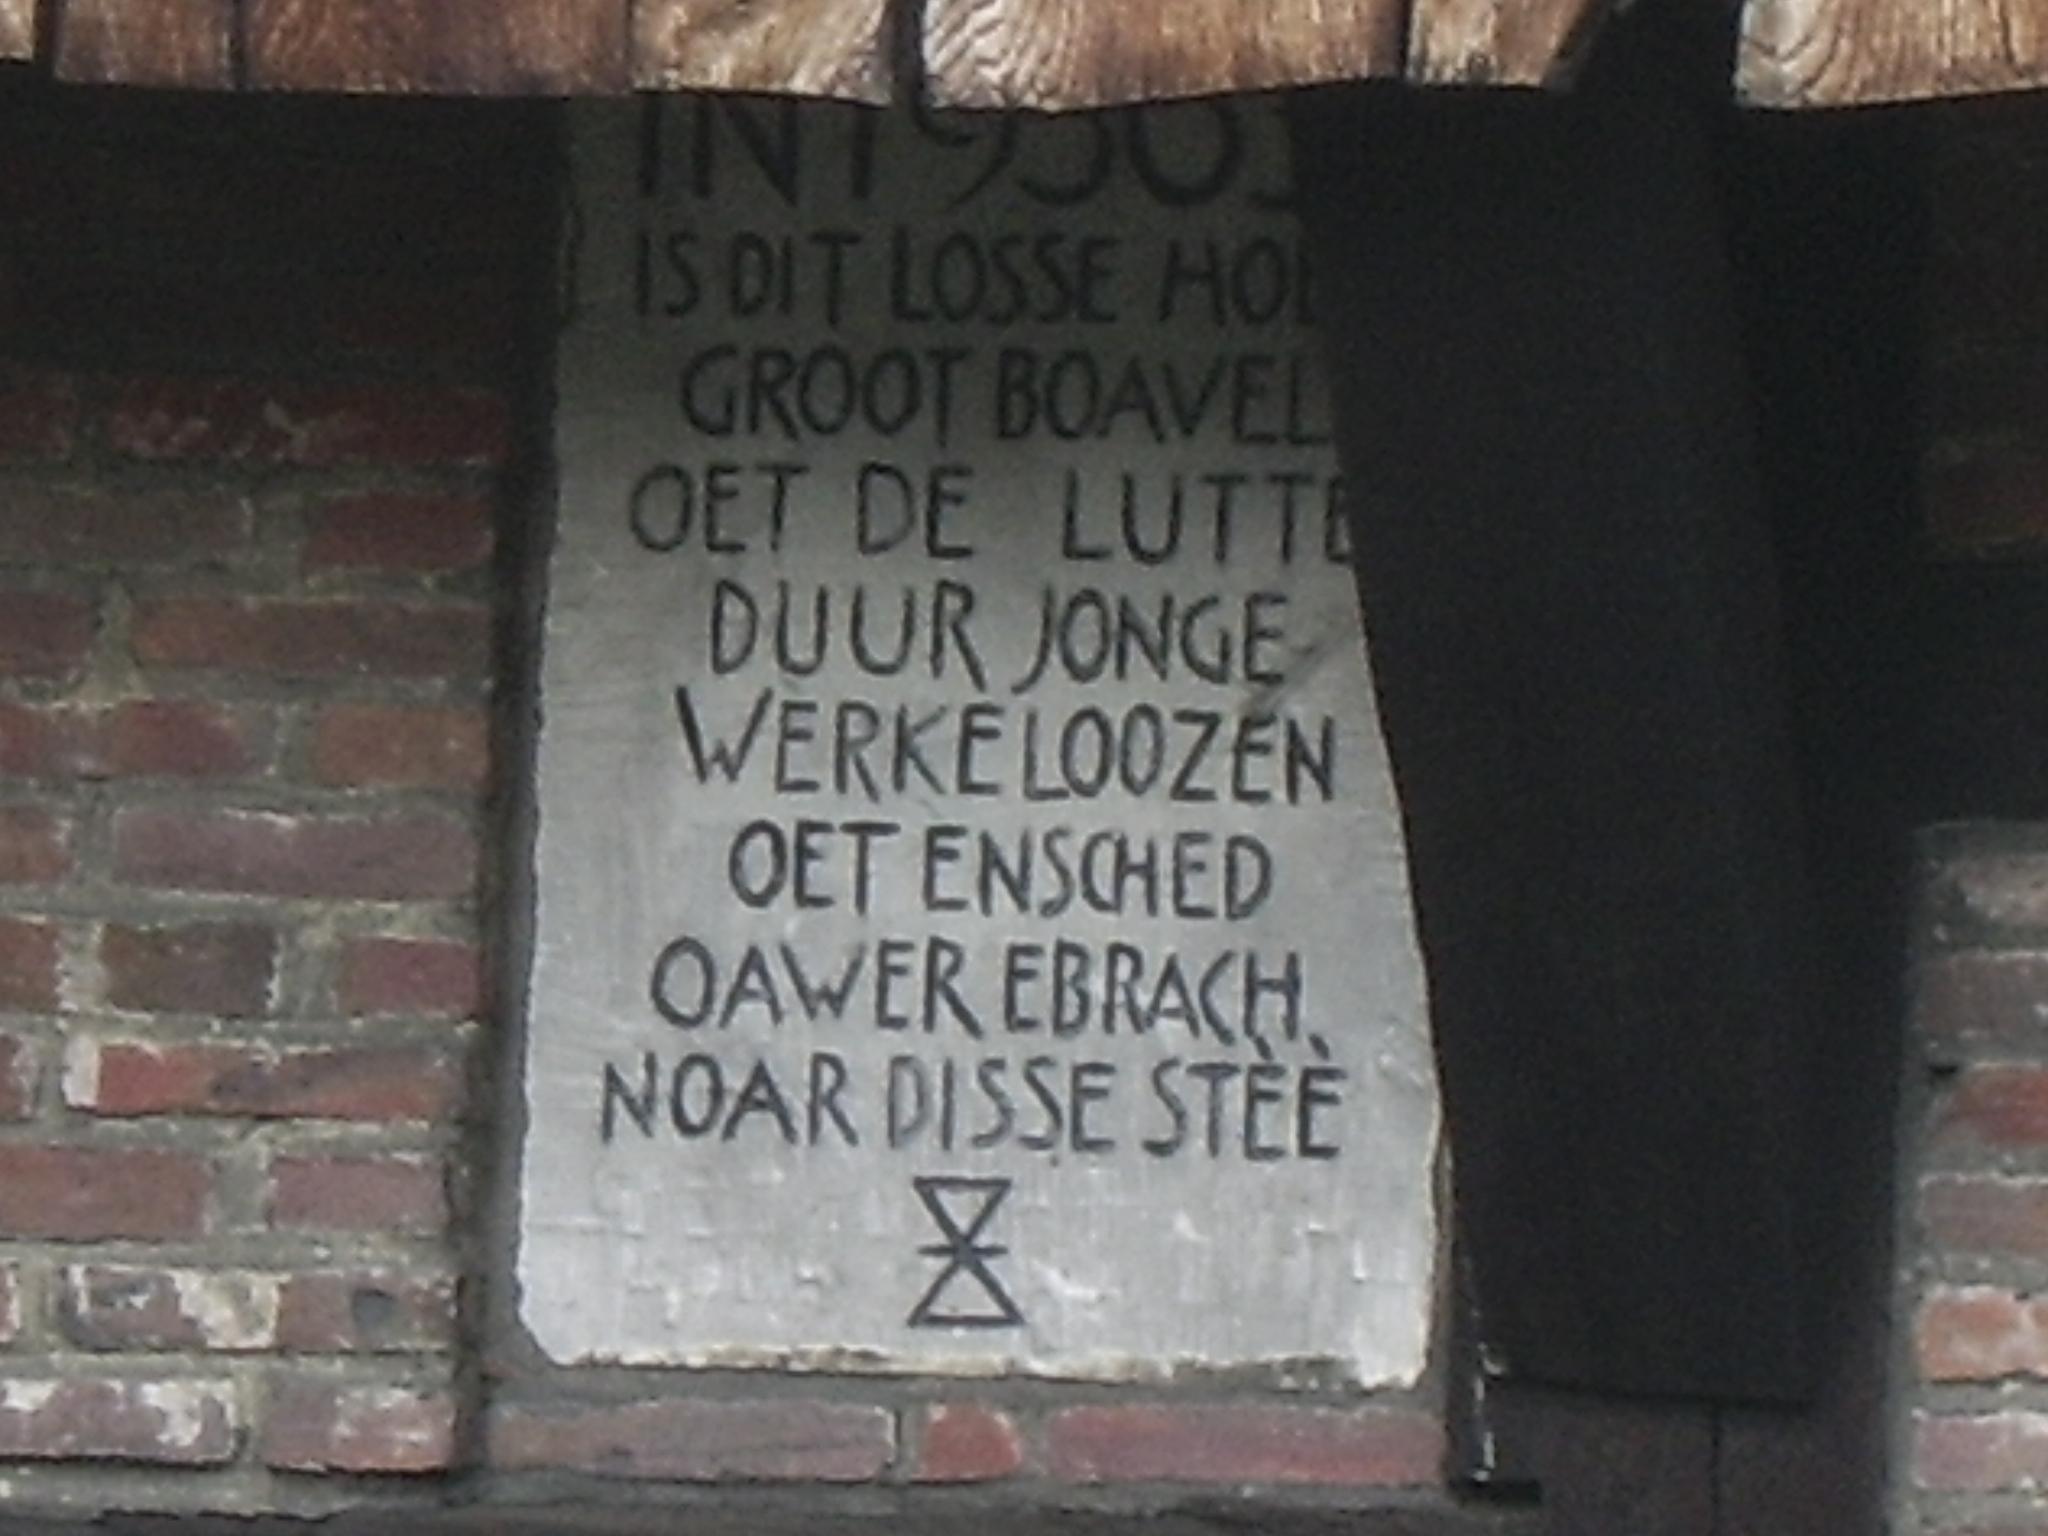 IS DIT LOSSE
GROOT BOAVEL
OET DE LUTTE
DUUR JONGE
WERKELOOZEN
OET ENSCHED
OAWER EBRACH
NOAR DISSE STÈÈ